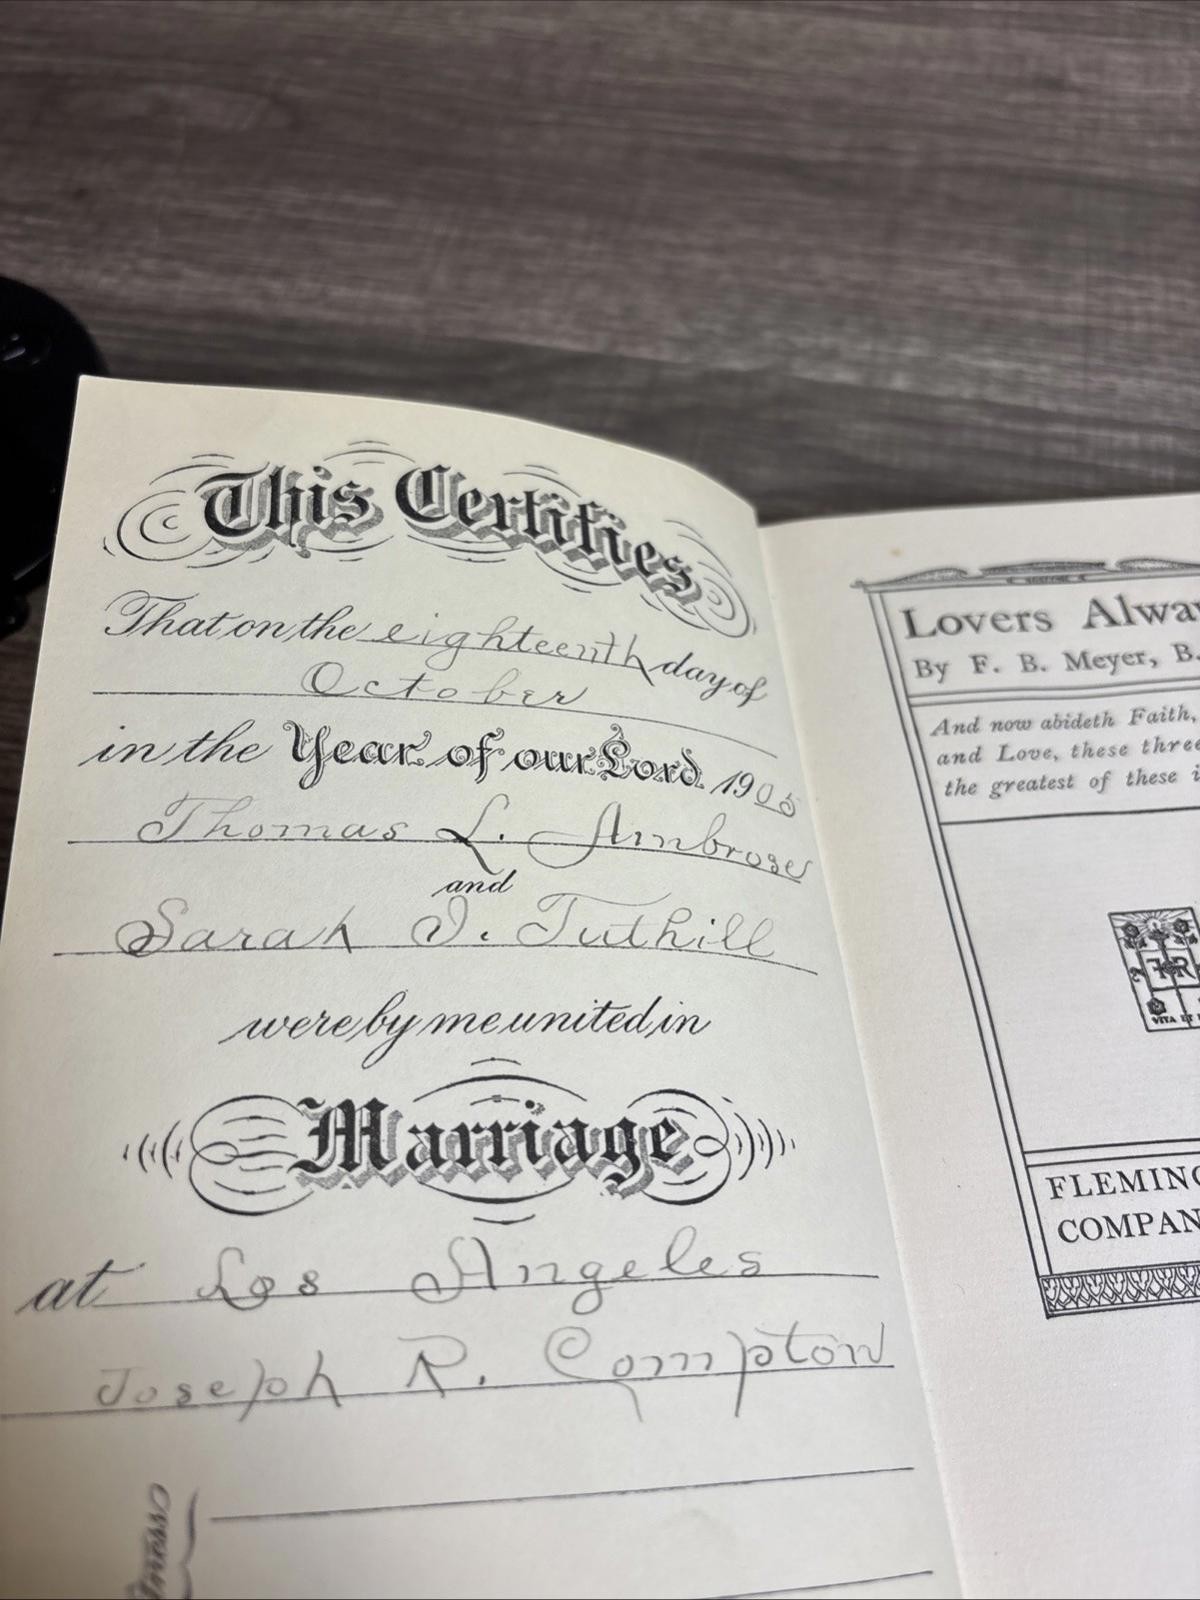 This Certifies
That on the eighteenth day of
October
in the Year of our Lord 1905
Thomas L. Ambrose
and
Sarah J. Tuthill
were by me united in
Marriage
at Los Angeles
Joseph R. Compton
Lovers Alwa
By F. B. Meyer, B.
And now abideth Faith,
and Love, these three
the greatest of these i
FHR
VITA ET
FLEMING
COMPAN